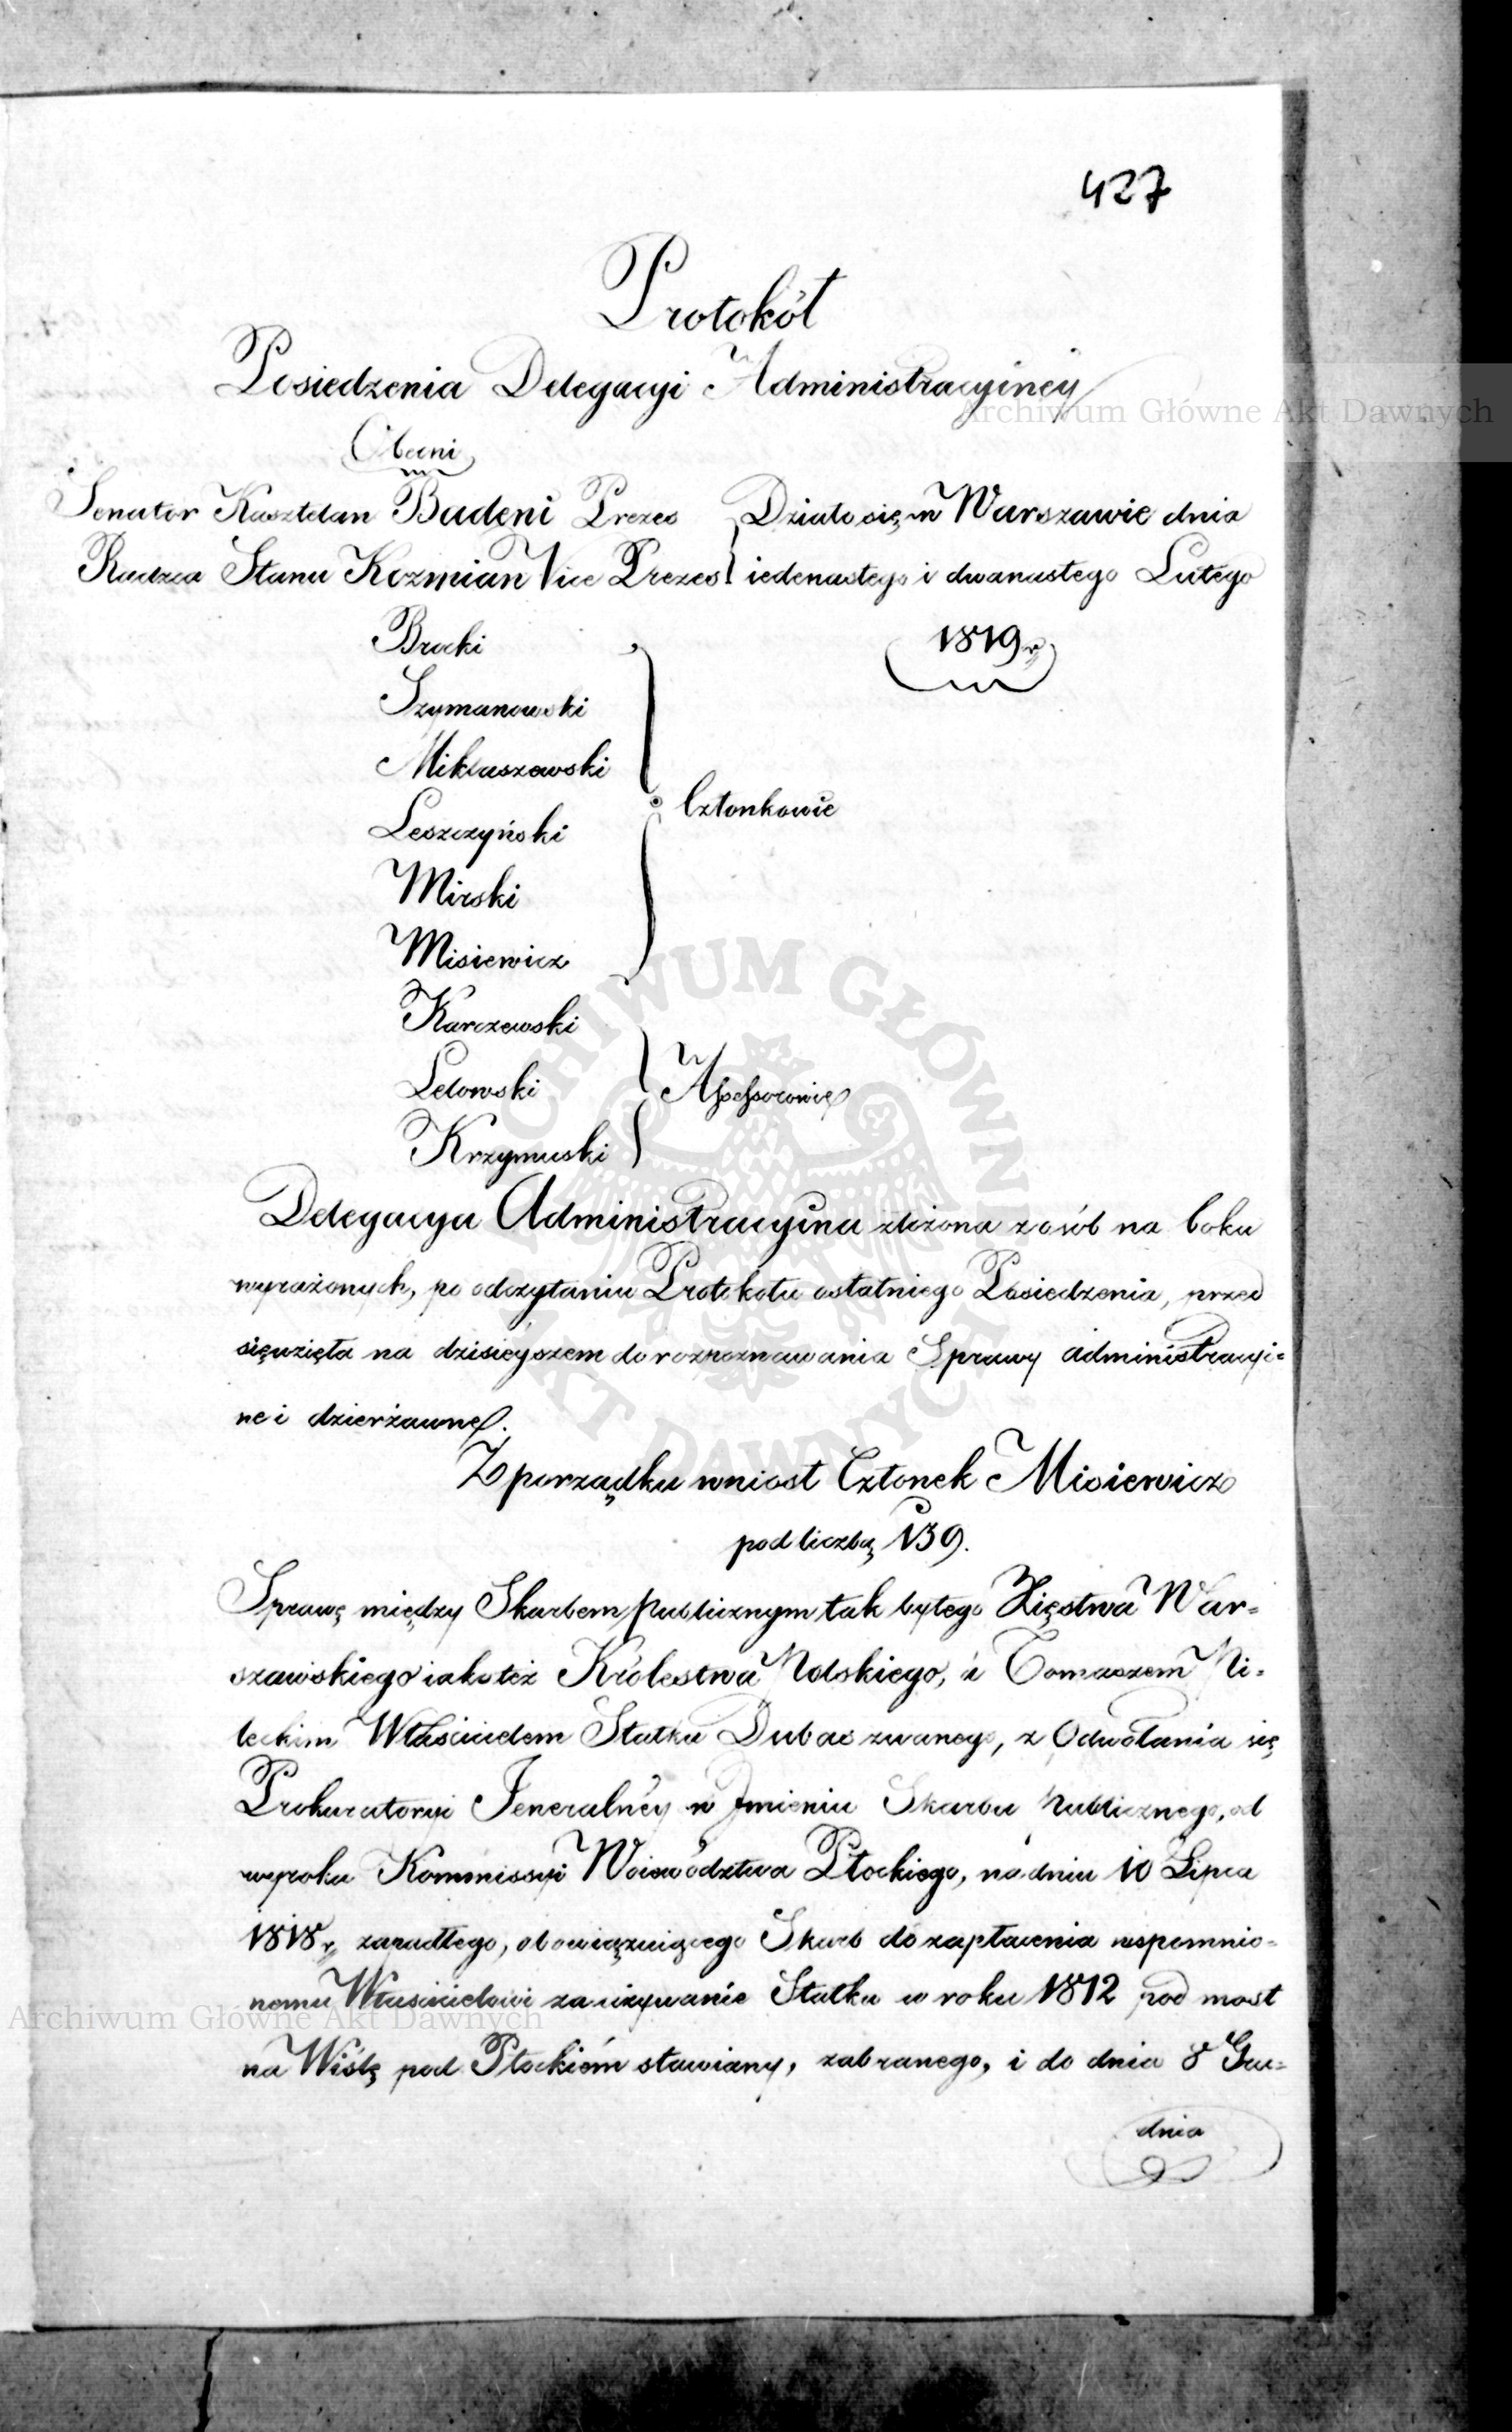 427
Protokół
Posiedzenia Delegacyi Administracyiney
Obecni
Senator Kasztelan Badeni Prezes
Radzca Stanu Kozmian Vice Prezes
Działo się w Warszawie dnia
iedenastego i dwanastego Lutego
1819 r.
Brocki
Szymanowski
Miklaszewski
Leszczyński
Mirski
Misiewicz
Członkowie
Karczewski
Ledowski
Krzymuski
Assessorowie
Delegacya Administracyina złożona z osób na boku
wyrażonych, po odczytaniu Protokołu ostatniego Posiedzenia, przed
sięwzięła na dzisieyszem do rozpoznawania Sprawy administracyi=
ne i dzierżawne.
Z porządku wniosł Członek Misiewicz
pod liczbą 139.
Sprawę między Skarbem Publicznym tak byłego Xięstwa War=
szawskiego iako też Królestwa Polskiego, a Tomaszem Ni=
teckim Właścicielem Statku Dubas zwanego, z Odwołania się
Prokuratoryi Jeneralney w Jmieniu Skarbu Publicznego, od
wyroku Kommissyi Woiewództwa Płockiego, na dniu 10 Lipca
1818 r. zapadłego, obowiązuiącego Skarb do zapłacenia wspomnio=
nemu Właścicielowi za używanie Statku w roku 1812 pod most
na Wiślę pod Płockiem stawiany, zabranego, i do dnia 8 Gru=
dnia
Archiwum Główne Akt Dawnych
Archiwum Główne Akt Dawnych
ARCHIWUM GŁÓWNE AKT DAWNYCH